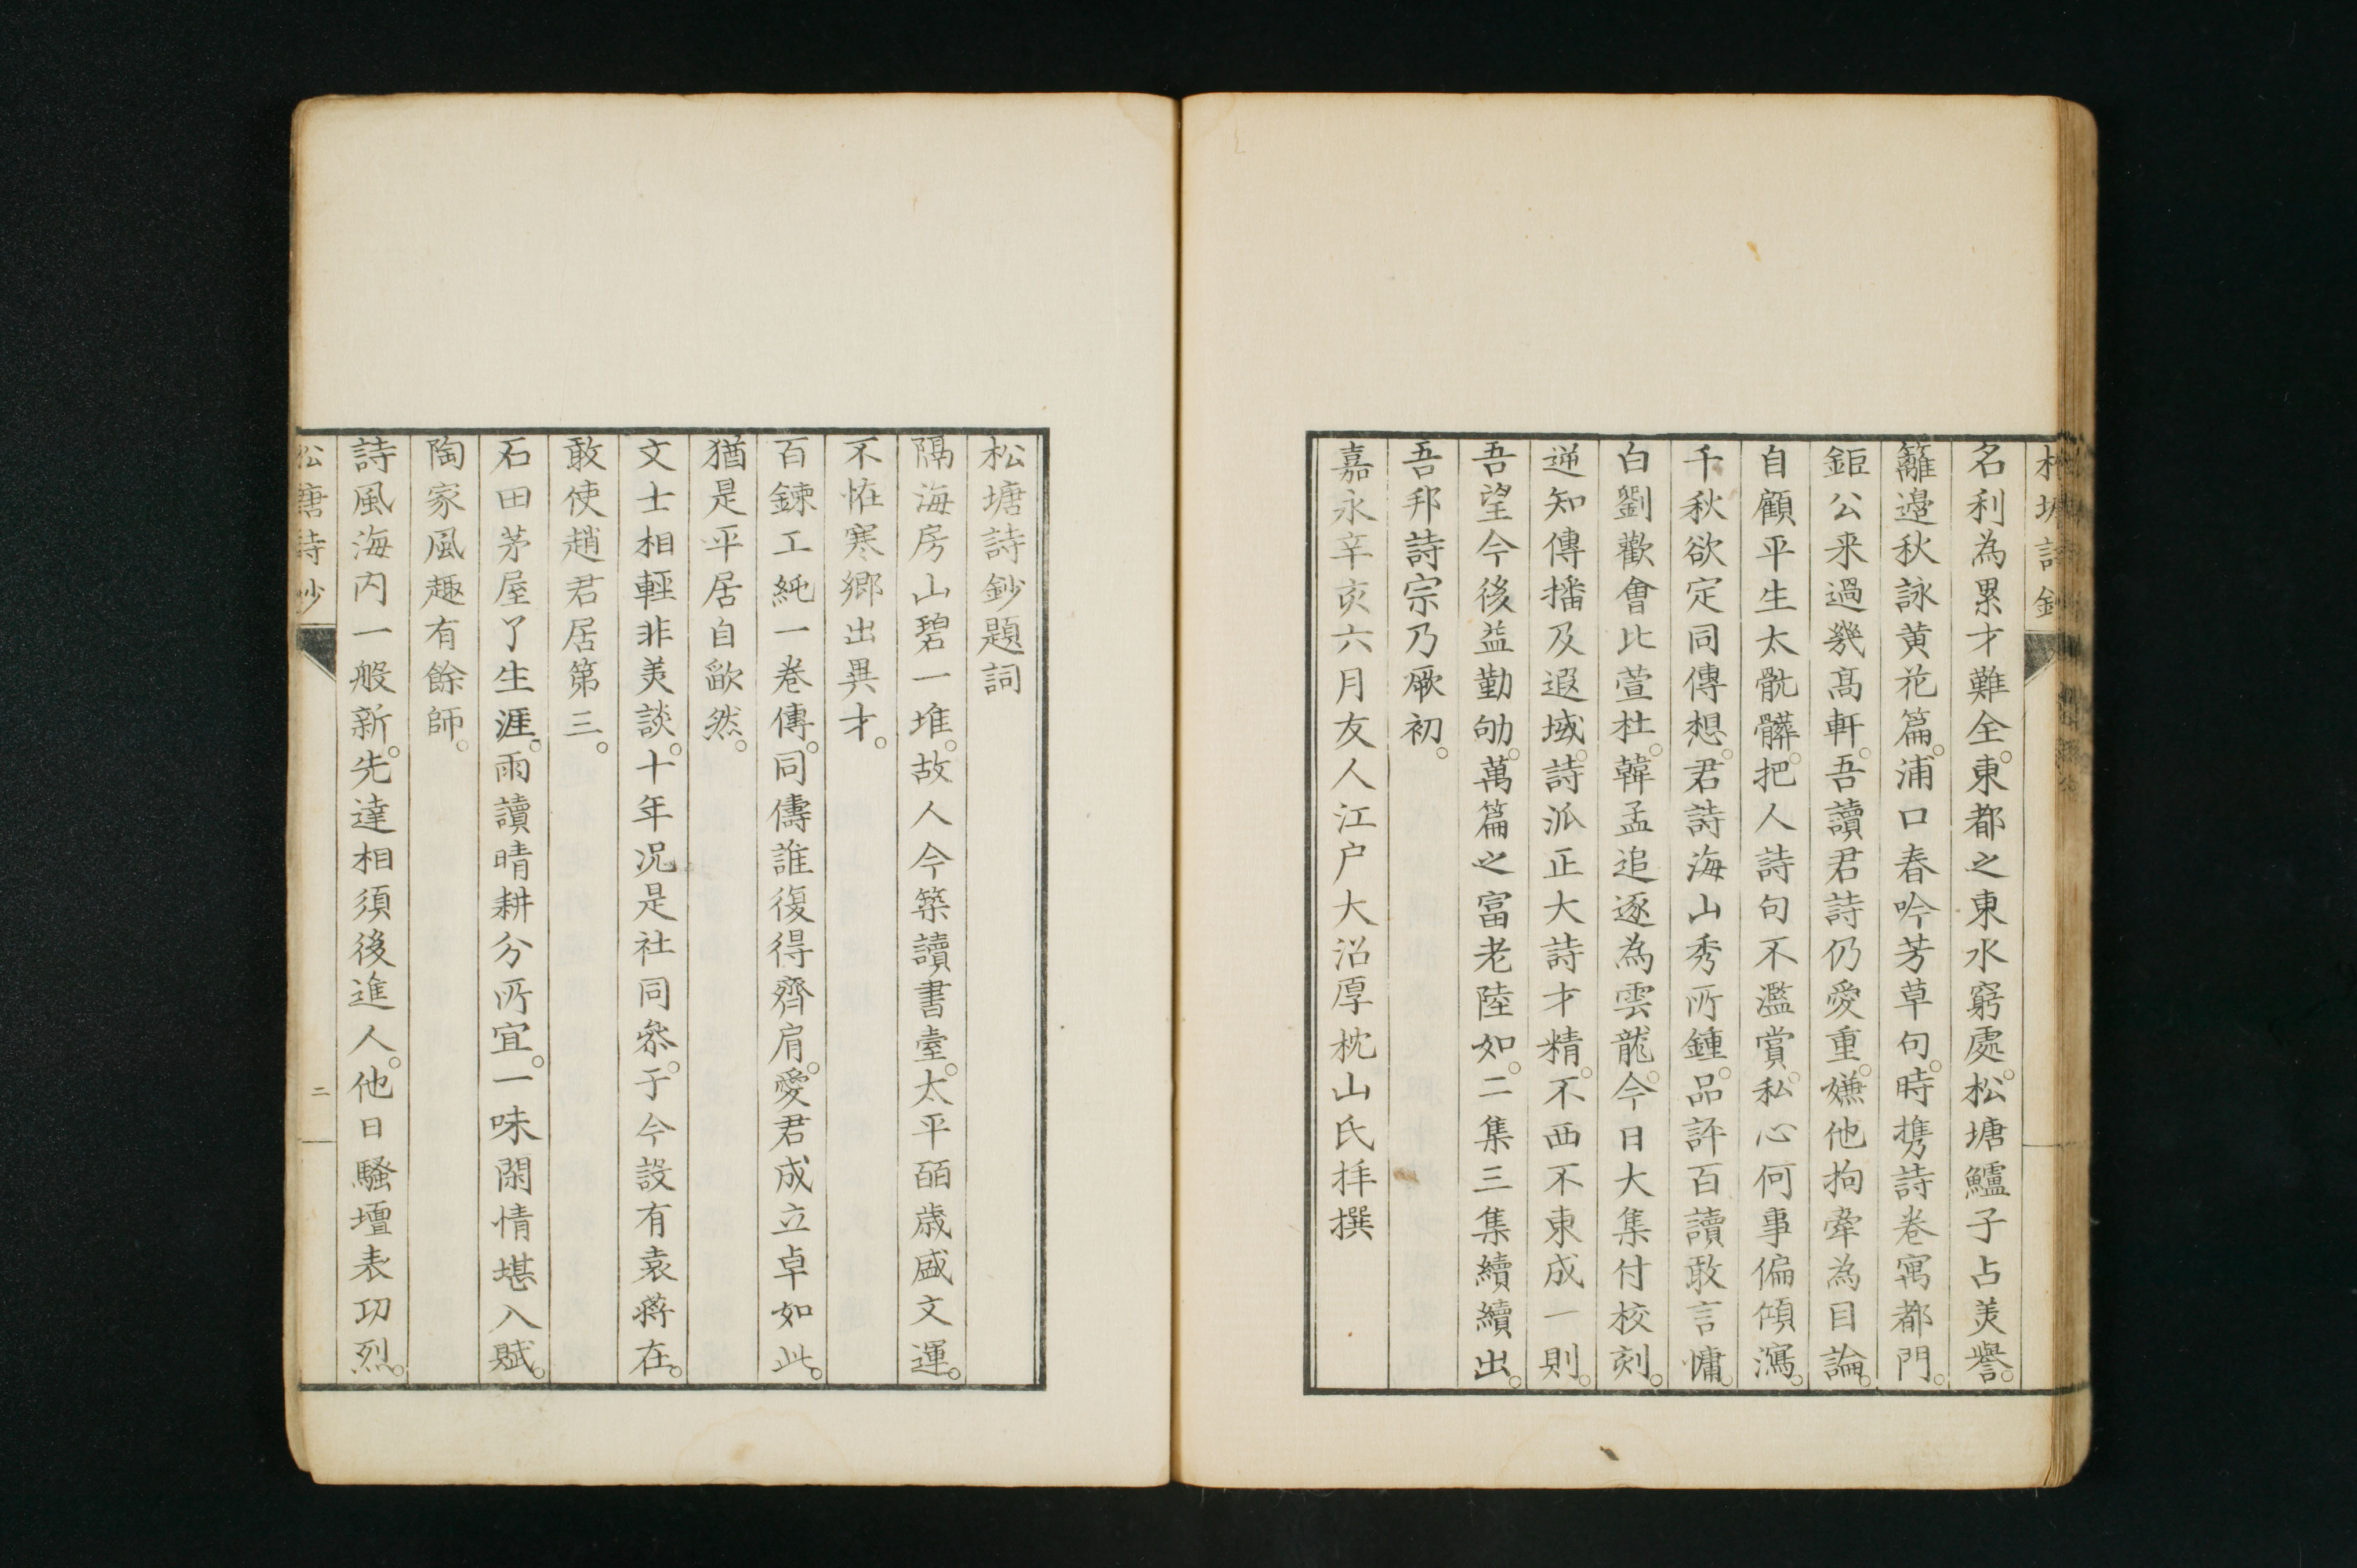 松塘詩鈔
名利為累才難全。東都之東水窮處。松塘鱸子占美譽。
籬邊秋詠黄花篇。浦口春吟芳草句。時携詩卷寓都門。
鉅公来過幾髙軒。吾讀君詩仍愛重。嫌他拘牽為目論。
自顧平生太骯髒。把人詩句不濫賞。私心何事偏傾瀉。
千秋欲定同傳想。君詩海山秀所鍾。品評百讀敢言慵。
白劉歡會比萱杜。韓孟追逐為雲龍。今日大集付校刻。
遞知傳播及遐域。詩派正大詩才精。不西不東成一則。
吾望今後益勤劬。萬篇之富老陸如。二集三集續續出。
吾邦詩宗乃厥初。
嘉永辛亥六月友人江户大沼厚枕山氏拝撰
松塘詩鈔題詞
隔海房山碧一堆。故人今築讀書臺。太平百歳盛文運。
不恠寒鄉出異才。
百鍊工純一卷傳。同儔誰復得齊肩。愛君成立卓如此。
猶是平居自歐然。
文士相輕非美談。十年况是社同叅。于今設有袁蒋在。
敢使趙君居第三。
石田茅屋了生涯。雨讀晴耕分所宜。一味閑情堪入賦。
陶家風趣有餘師。
詩風海内一般新。先達相須後進人。他日騷壇表功烈。
松塘詩鈔
二